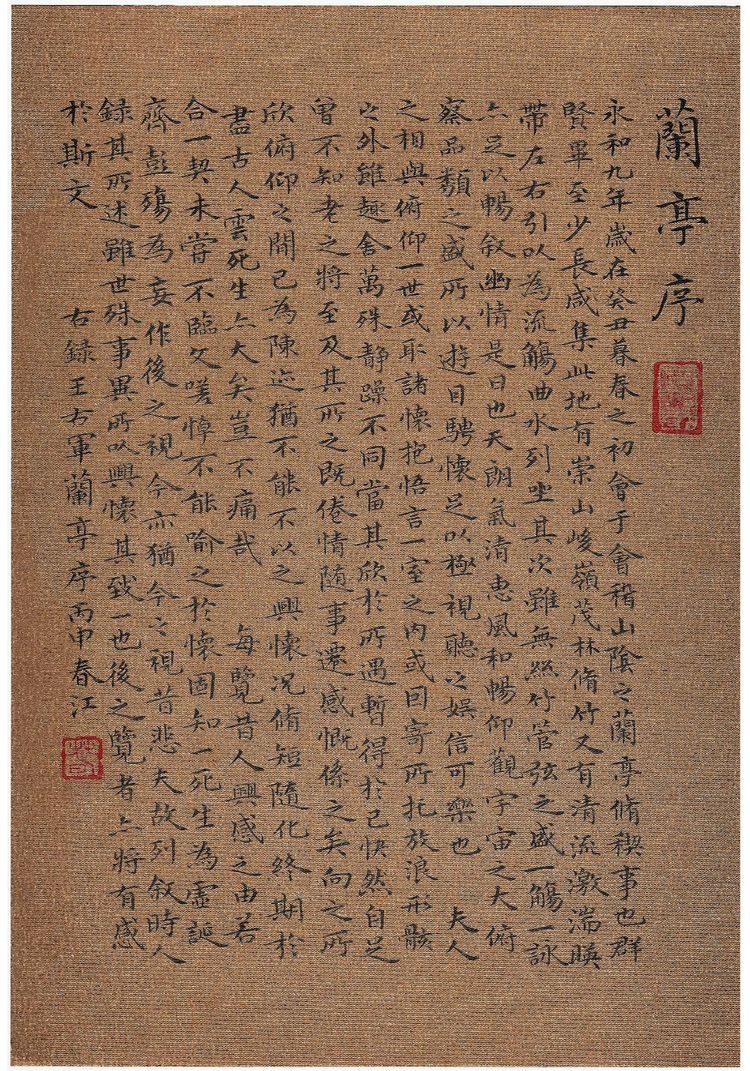 蘭亭序
永和九年歲在癸丑暮春之初會于會稽山陰之蘭亭脩稧事也群
賢畢至少長咸集此地有崇山峻嶺茂林脩竹又有清流激湍暎
帶左右引以為流觴曲水列坐其次雖無絲竹管弦之盛一觴一詠
亦足以暢叙幽情是日也天朗氣清惠風和暢仰觀宇宙之大俯
察品類之盛所以遊目騁懷足以極視聽之娛信可樂也 夫人
之相與俯仰一世或取諸懷抱悟言一室之內或因寄所托放浪形骸
之外雖趣舍萬殊静躁不同當其欣於所遇暫得於己快然自足
曾不知老之將至及其所之既倦情隨事遷感慨係之矣向之所
欣俯仰之間已為陳迹猶不能不以之興懷况脩短隨化終期於
盡古人雲死生亦大矣豈不痛哉 每覽昔人興感之由若
合一契未嘗不臨文嗟悼不能喻之於懷固知一死生為虛誕
齊彭殤為妄作後之視今亦猶今之視昔悲夫故列叙時人
錄其所述雖世殊事異所以興懷其致一也後之覽者亦將有感
於斯文 右錄王右軍蘭亭序丙申春江